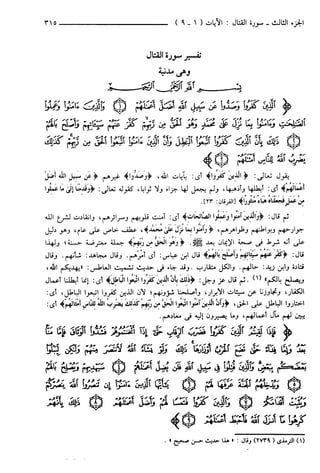 الجزء الثالث - سورة القتال : الآيات ( ١ - ٩ ) ٣١٥
تفسير سورة القتال
وهى مدنية
بسم الله الرحمن الرحيم
﴿ الَّذِينَ كَفَرُوا وَصَدُّوا عَن سَبِيلِ اللَّهِ أَضَلَّ أَعْمَالَهُمْ ① وَالَّذِينَ ءَامَنُوا وَعَمِلُوا
الصَّالِحَاتِ وَءَامَنُوا بِمَا نُزِّلَ عَلَىٰ مُحَمَّدٍ وَهُوَ الْحَقُّ مِن رَّبِّهِمْ كَفَّرَ عَنْهُمْ سَيِّئَاتِهِمْ وَأَصْلَحَ بَالَهُمْ
② ذَٰلِكَ بِأَنَّ الَّذِينَ كَفَرُوا اتَّبَعُوا الْبَاطِلَ وَأَنَّ الَّذِينَ ءَامَنُوا اتَّبَعُوا الْحَقَّ مِن رَّبِّهِمْ كَذَٰلِكَ
يَضْرِبُ اللَّهُ لِلنَّاسِ أَمْثَالَهُمْ ③ ﴾
يقول تعالى: ﴿ الَّذِينَ كَفَرُوا ﴾ أى: بآيات الله، ﴿ وَصَدُّوا ﴾ غيرهم ﴿ عَن سَبِيلِ اللَّهِ أَضَلَّ
أَعْمَالَهُمْ ﴾ أى: أبطلها وأذهبها، ولم يجعل لها جزاء ولا ثوابا، كقوله تعالى: ﴿ وَقَدِمْنَا إِلَىٰ مَا عَمِلُوا
مِنْ عَمَلٍ فَجَعَلْنَاهُ هَبَاءً مَّنثُورًا ﴾ [الفرقان: ٢٣].
ثم قال: ﴿ وَالَّذِينَ آمَنُوا وَعَمِلُوا الصَّالِحَاتِ ﴾ أى: آمنت قلوبهم وسرائرهم، وانقادت لشرع الله
جوارحهم وبواطنهم وظواهرهم، ﴿ وَآمَنُوا بِمَا نُزِّلَ عَلَىٰ مُحَمَّدٍ ﴾، عطف خاص على عام، وهو دليل
على أنه شرط فى صحة الإيمان بعد بعثته ﷺ. ﴿ وَهُوَ الْحَقُّ مِن رَّبِّهِمْ ﴾ جملة معترضة حسنة؛ ولهذا
قال: ﴿ كَفَّرَ عَنْهُمْ سَيِّئَاتِهِمْ وَأَصْلَحَ بَالَهُمْ ﴾ قال ابن عباس: أى أمرهم. وقال مجاهد: شأنهم. وقال
قتادة وابن زيد: حالهم. والكل متقارب. وقد جاء فى حديث تشميت العاطس: «يهديكم الله،
ويصلح بالكم» (١). ثم قال عز وجل: ﴿ ذَٰلِكَ بِأَنَّ الَّذِينَ كَفَرُوا اتَّبَعُوا الْبَاطِلَ ﴾ أى: إنما أبطلنا أعمال
الكفار، وتجاوزنا عن سيئات الأبرار، وأصلحنا شؤونهم؛ لأن الذين كفروا اتبعوا الباطل، أى:
اختاروا الباطل على الحق، ﴿ وَأَنَّ الَّذِينَ آمَنُوا اتَّبَعُوا الْحَقَّ مِن رَّبِّهِمْ كَذَٰلِكَ يَضْرِبُ اللَّهُ لِلنَّاسِ أَمْثَالَهُمْ ﴾ أى:
يبين لهم مآل أعمالهم، وما يصيرون إليه فى معادهم.
﴿ فَإِذَا لَقِيتُمُ الَّذِينَ كَفَرُوا فَضَرْبَ الرِّقَابِ حَتَّىٰ إِذَا أَثْخَنتُمُوهُمْ فَشُدُّوا الْوَثَاقَ فَإِمَّا مَنًّا
بَعْدُ وَإِمَّا فِدَاءً حَتَّىٰ تَضَعَ الْحَرْبُ أَوْزَارَهَا ذَٰلِكَ وَلَوْ يَشَاءُ اللَّهُ لَانتَصَرَ مِنْهُمْ وَلَٰكِن لِّيَبْلُوَا
بَعْضَكُم بِبَعْضٍ وَالَّذِينَ قُتِلُوا فِي سَبِيلِ اللَّهِ فَلَن يُضِلَّ أَعْمَالَهُمْ ④ سَيَهْدِيهِمْ وَيُصْلِحُ بَالَهُمْ
⑤ وَيُدْخِلُهُمُ الْجَنَّةَ عَرَّفَهَا لَهُمْ ⑥ يَا أَيُّهَا الَّذِينَ ءَامَنُوا إِن تَنصُرُوا اللَّهَ يَنصُرْكُمْ
وَيُثَبِّتْ أَقْدَامَكُمْ ⑦ وَالَّذِينَ كَفَرُوا فَتَعْسًا لَّهُمْ وَأَضَلَّ أَعْمَالَهُمْ ⑧ ذَٰلِكَ بِأَنَّهُمْ
كَرِهُوا مَا أَنزَلَ اللَّهُ فَأَحْبَطَ أَعْمَالَهُمْ ⑨ ﴾
(١) الترمذى (٢٧٣٩) وقال: «هذا حديث حسن صحيح».